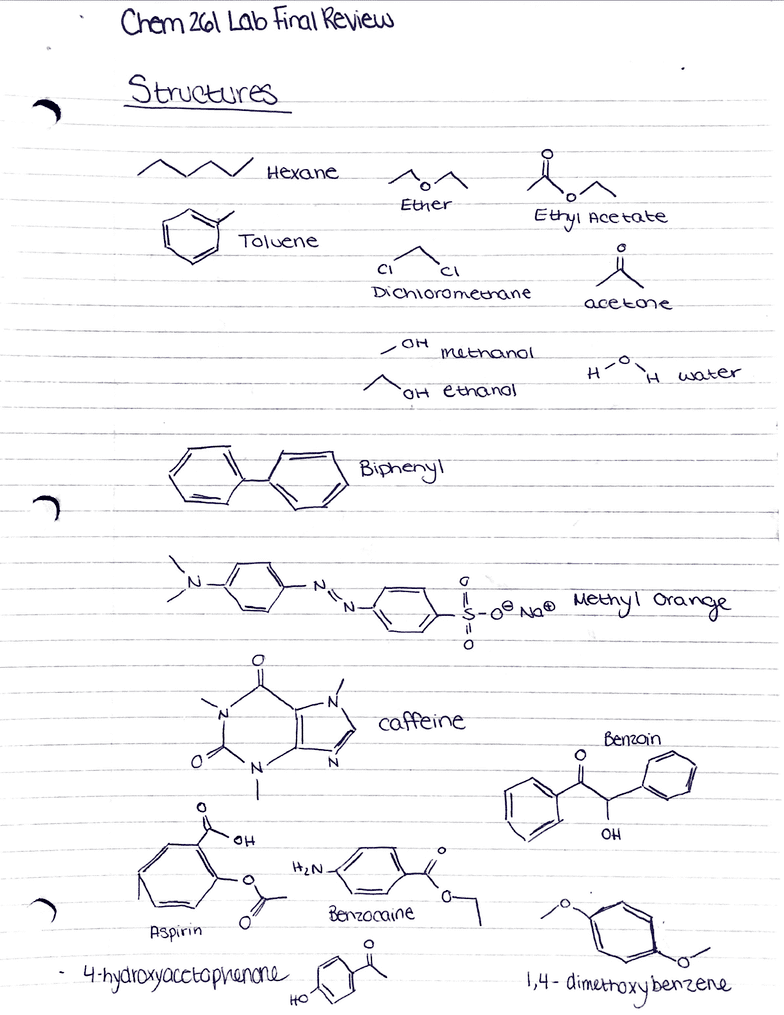 Chem 261 Lab Final Review
Structures
Hexane
O
Ether
O
O
Ethyl Acetate
Toluene
Cl Cl
Dichloromethane
O
acetone
OH methanol
OH ethanol
H O H water
Biphenyl
N N N O S O O⊖ Na⊕ Methyl Orange
O N N O N N caffeine
Benzoin
O
OH
O
OH
O
O
Aspirin
H₂N O
O
Benzocaine
O
O
1,4-dimethoxybenzene
- 4-hydroxyacetophenone
O
HO